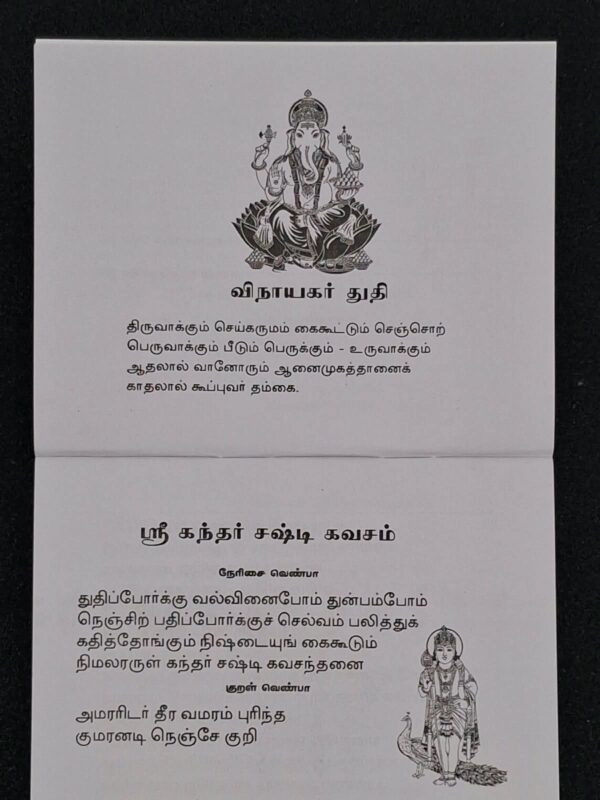 விநாயகர் துதி
திருவாக்கும் செய்கருமம் கைகூட்டும் செஞ்சொற்
பெருவாக்கும் பீடும் பெருக்கும் - உருவாக்கும்
ஆதலால் வானோரும் ஆனைமுகத்தானைக்
காதலால் கூப்புவர் தம்கை.
ஸ்ரீ கந்தர் சஷ்டி கவசம்
நேரிசை வெண்பா
துதிப்போர்க்கு வல்வினைபோம் துன்பம்போம்
நெஞ்சிற் பதிப்போர்க்குச் செல்வம் பலித்துக்
கதித்தோங்கும் நிஷ்டையுங் கைகூடும்
நிமலரருள் கந்தர் சஷ்டி கவசந்தனை
குறள் வெண்பா
அமரரிடர் தீர வமரம் புரிந்த
குமரனடி நெஞ்சே குறி